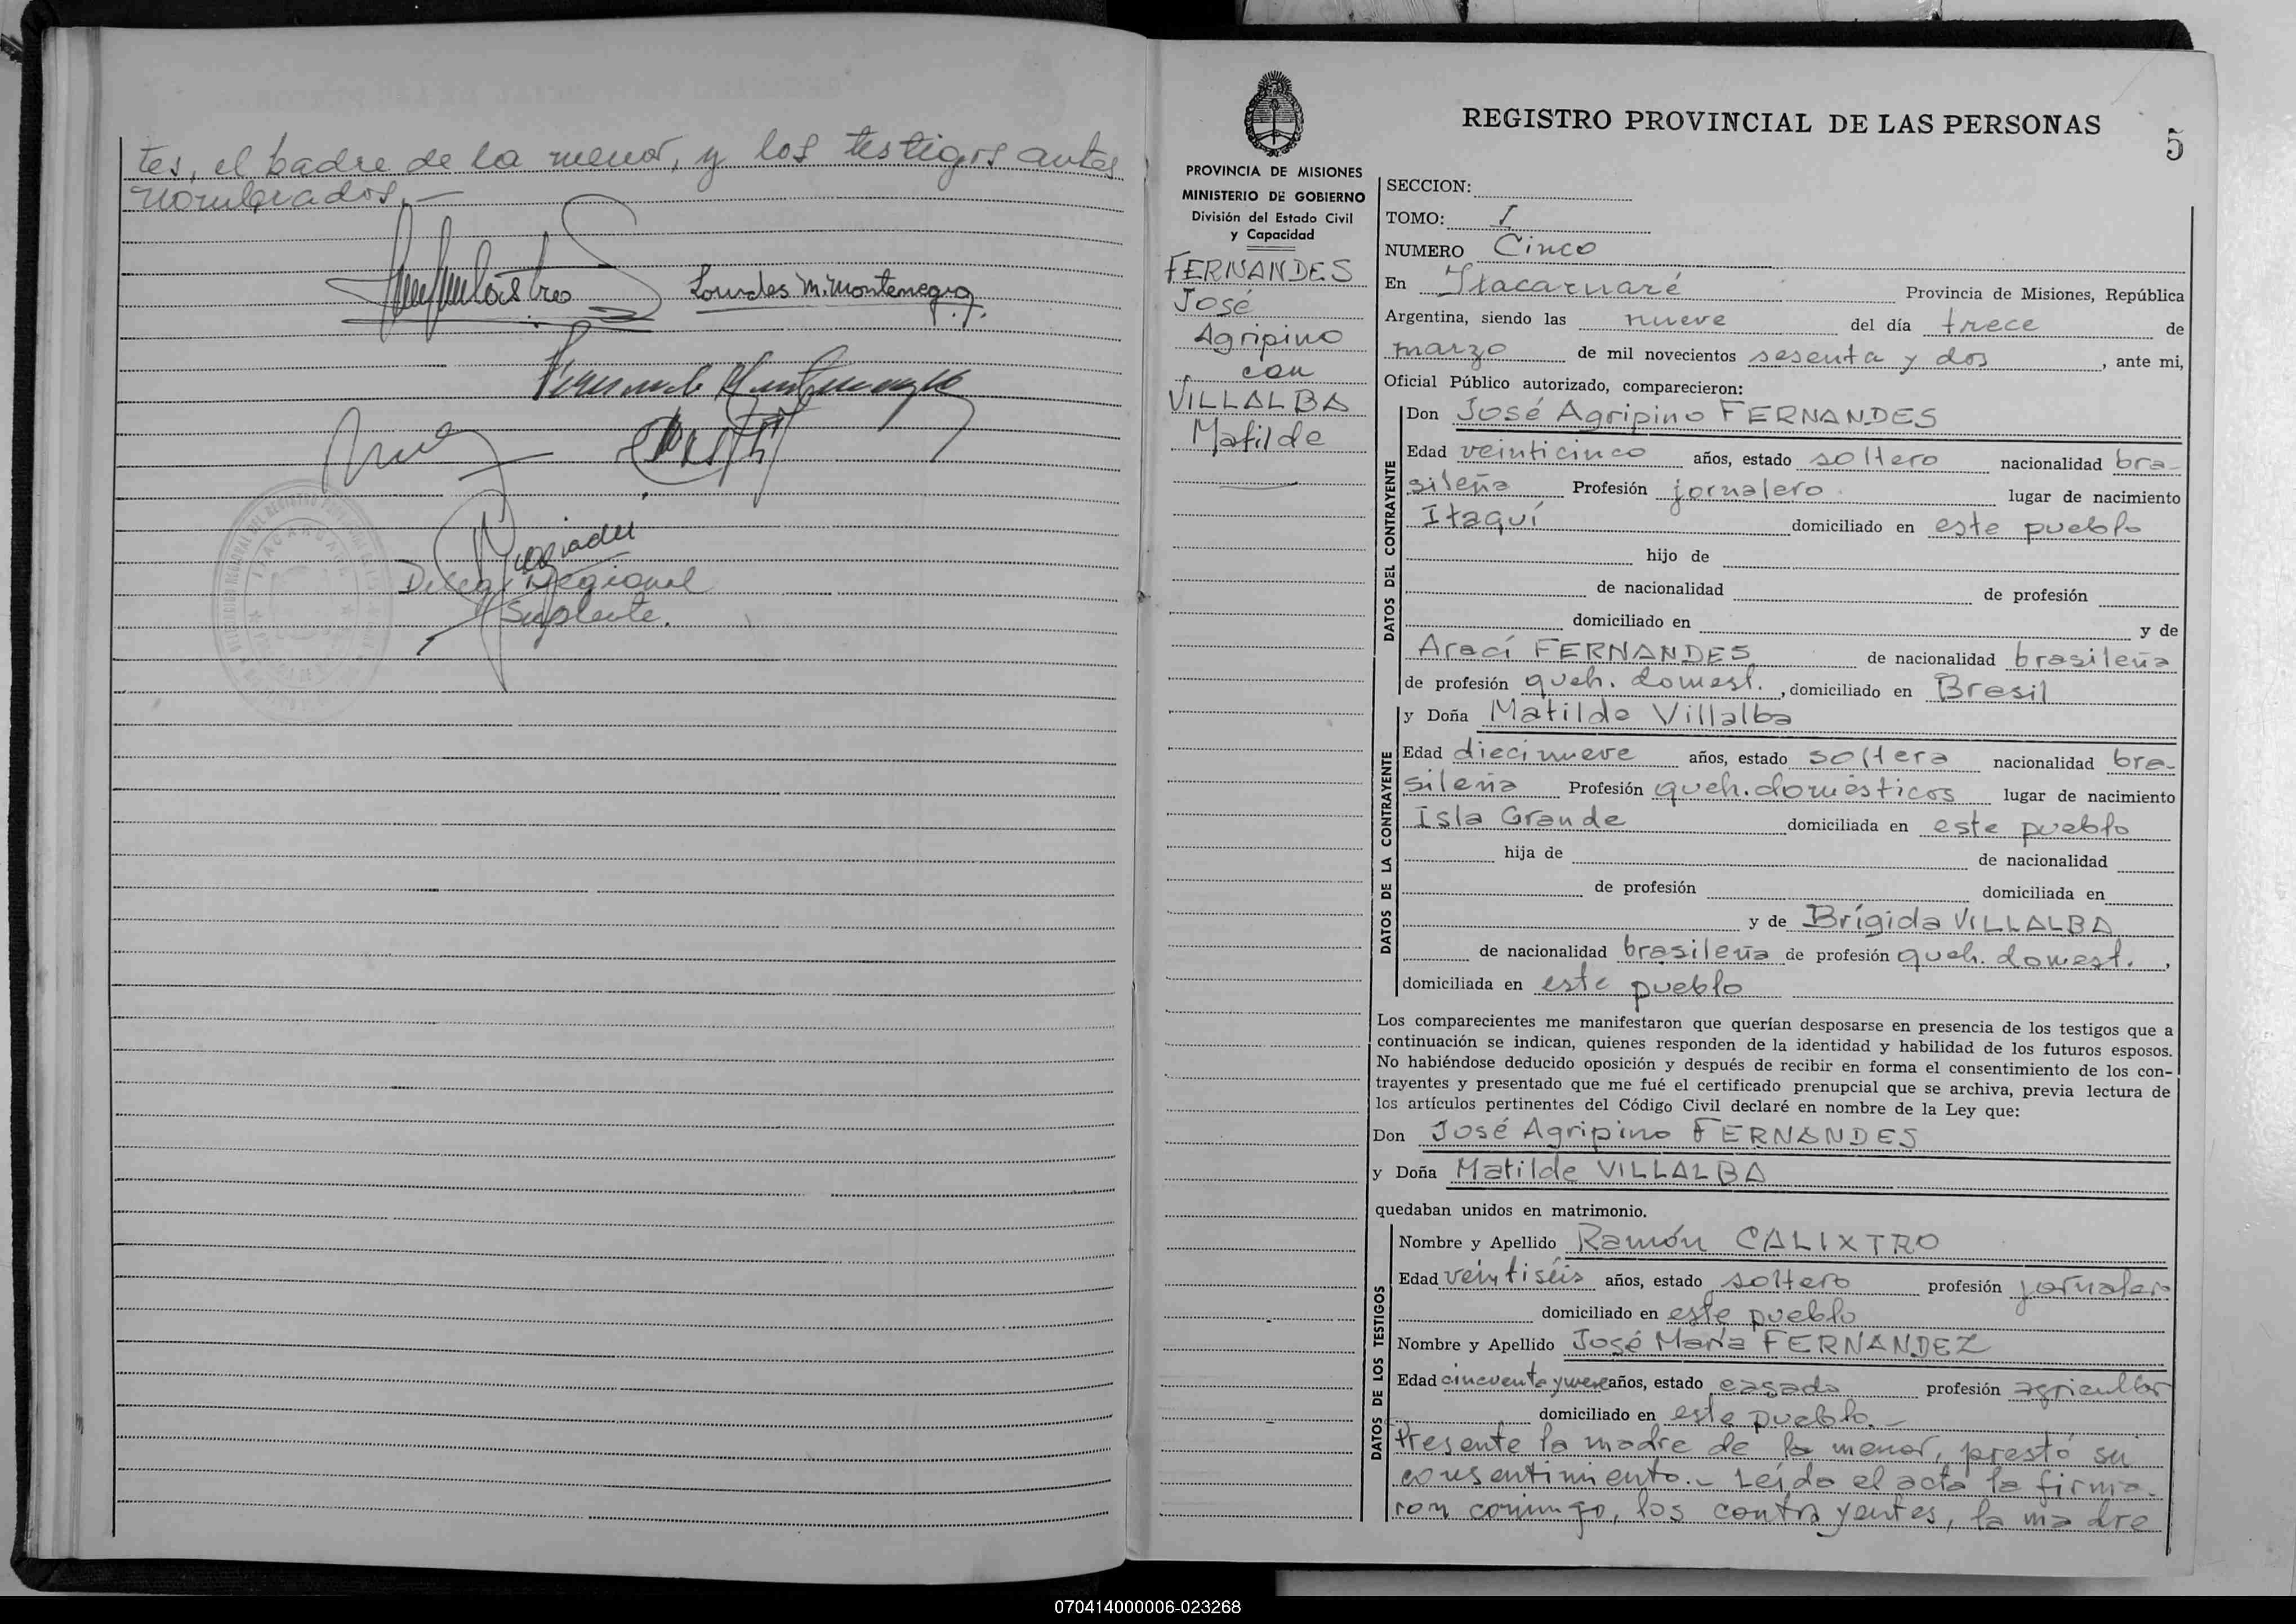 tes, el padre de la menor, y los testigos antes
nombrados.—
Lourdes M. Montenegro
Deleg. Regional
Suplente.
PROVINCIA DE MISIONES
MINISTERIO DE GOBIERNO
División del Estado Civil
y Capacidad
FERNANDES
José
Agripino
con
VILLALBA
Matilde
REGISTRO PROVINCIAL DE LAS PERSONAS
5
SECCION:
TOMO: I
NUMERO Cinco
En Itacaruaré Provincia de Misiones, República
Argentina, siendo las nueve del día trece de
marzo de mil novecientos sesenta y dos, ante mi,
Oficial Público autorizado, comparecieron:
DATOS DEL CONTRAYENTE
Don José Agripino FERNANDES
Edad veinticinco años, estado soltero nacionalidad bra-
sileña Profesión jornalero lugar de nacimiento
Itaquí domiciliado en este pueblo
hijo de
de nacionalidad de profesión
domiciliado en y de
Arací FERNANDES de nacionalidad brasileña
de profesión queh. domest., domiciliado en Brasil
DATOS DE LA CONTRAYENTE
y Doña Matilde Villalba
Edad diecinueve años, estado soltera nacionalidad bra-
sileña Profesión queh. domésticos lugar de nacimiento
Isla Grande domiciliada en este pueblo
hija de de nacionalidad
de profesión domiciliada en
y de Brígida VILLALBA
de nacionalidad brasileña de profesión queh. domest.,
domiciliada en este pueblo
Los comparecientes me manifestaron que querían desposarse en presencia de los testigos que a
continuación se indican, quienes responden de la identidad y habilidad de los futuros esposos.
No habiéndose deducido oposición y después de recibir en forma el consentimiento de los con-
trayentes y presentado que me fué el certificado prenupcial que se archiva, previa lectura de
los artículos pertinentes del Código Civil declaré en nombre de la Ley que:
Don José Agripino FERNANDES
y Doña Matilde VILLALBA
quedaban unidos en matrimonio.
DATOS DE LOS TESTIGOS
Nombre y Apellido Ramón CALIXTRO
Edad veintiséis años, estado soltero profesión jornalero
domiciliado en este pueblo
Nombre y Apellido José María FERNANDEZ
Edad cincuenta y nueve años, estado casado profesión agricultor
domiciliado en este pueblo.—
Presente la madre de la menor, prestó su
consentimiento.- Leída el acta la firma-
ron conmigo, los contrayentes, la madre
070414000006-023268